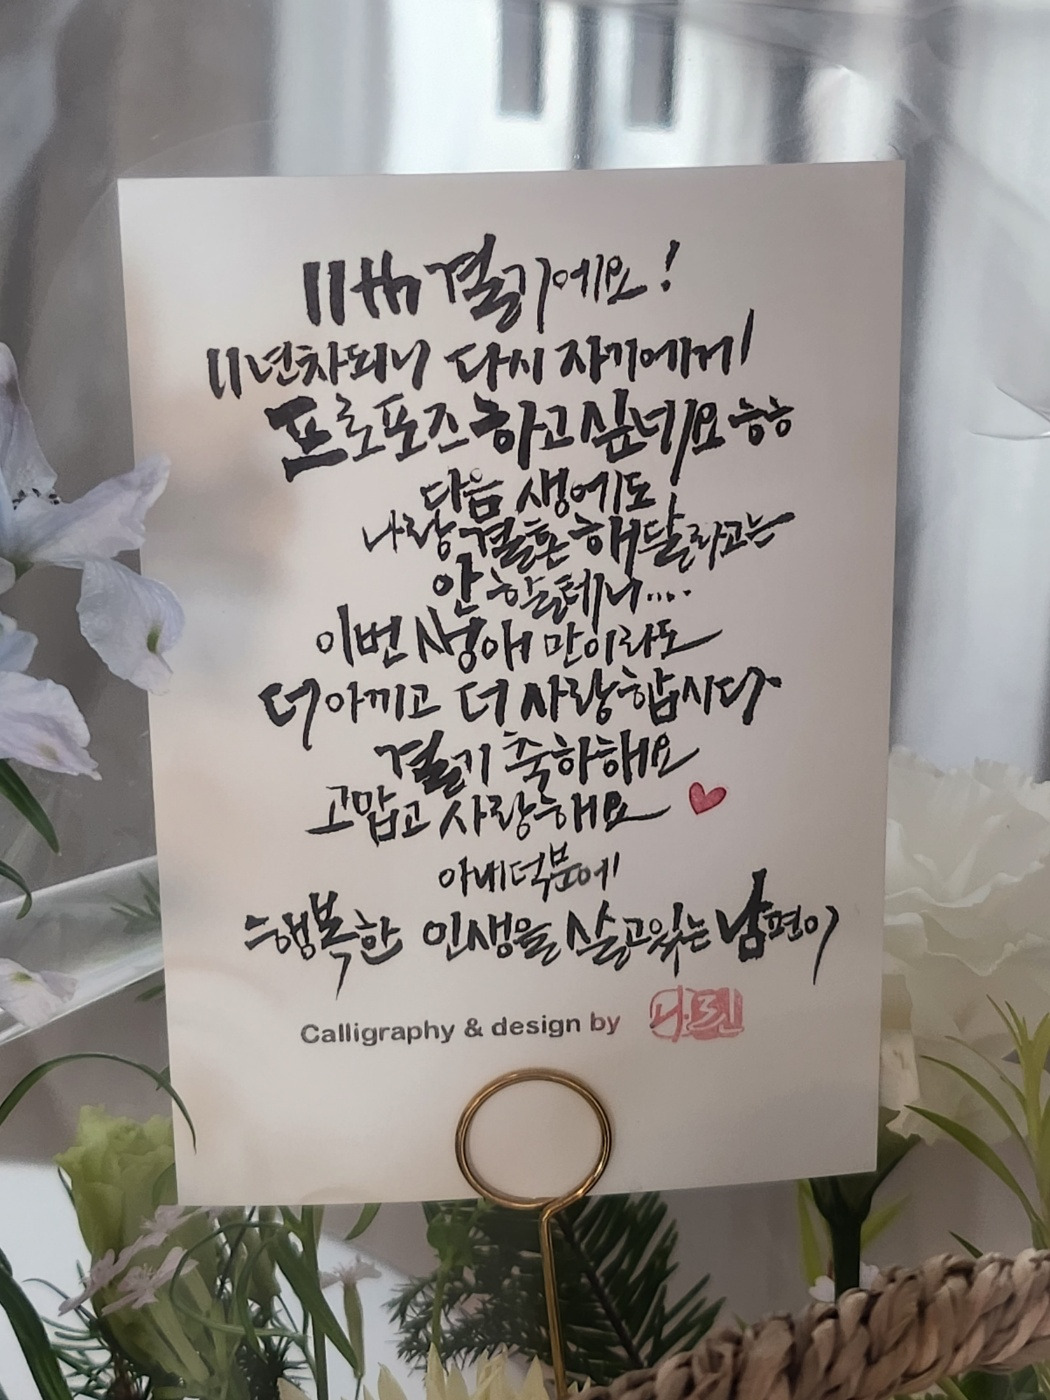 11th 결기에요!
11년차되니 다시 자기에게
프로포즈하고싶네요ㅎㅎ
다음 생에도
나랑 결혼해달라고는
안 할테니....
이번 생애 만이라도
더 아끼고 더 사랑합시다
결기 축하해요
고맙고 사랑해요
아내덕분에
행복한 인생을 살고있는 남편이
Calligraphy & design by